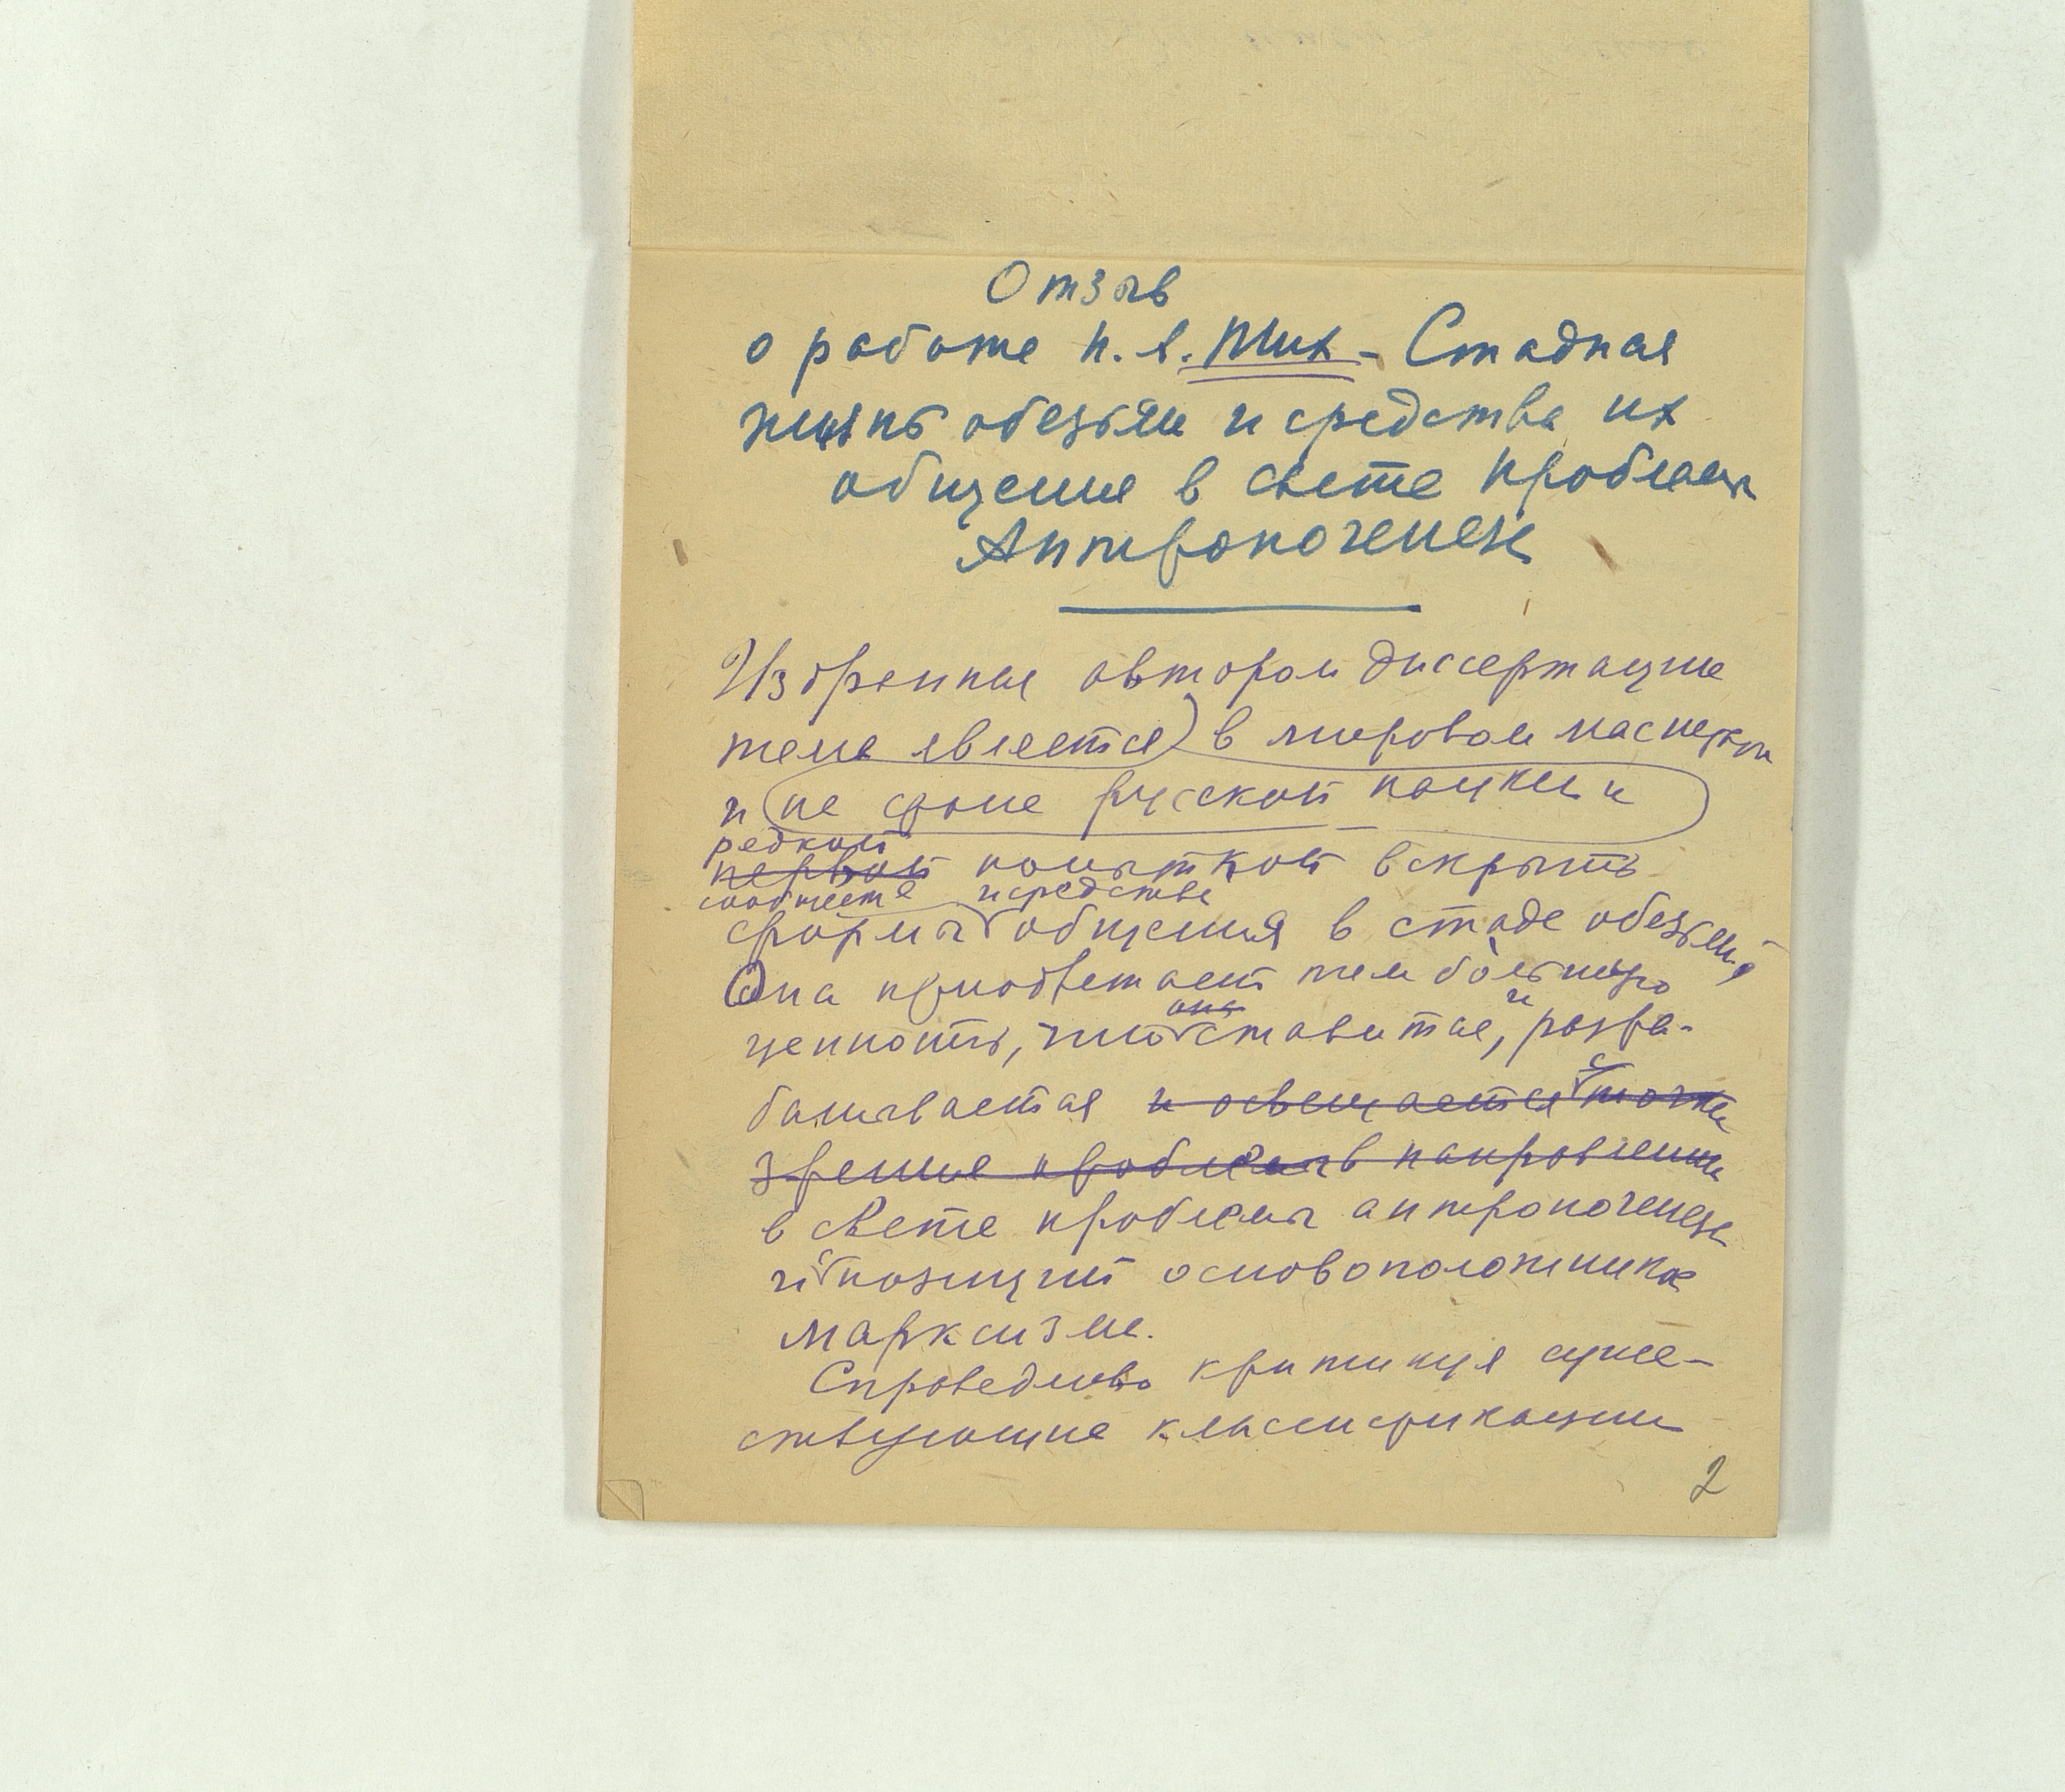 Отзыв
о работе Н.А. Тих - Стадная
жизнь обезьян и средства их
общения в свете проблемы
Антропогенеза
Избранная автором диссертации
тема является в мировом масштабе
и не фоне русской науки и
редкой
первой попыткой вскрыть
и средства
формы общения в стаде обезьян.
Она приобретает тем большую
она и
ценность, что ставится, разра-
с
батывается и освещается точки
зрения проблемы в направлении
в свете проблемы антропогенеза
с
и позиций основоположников
марксизма.
Справедливо критикуя суще-
ствующие классификации
2